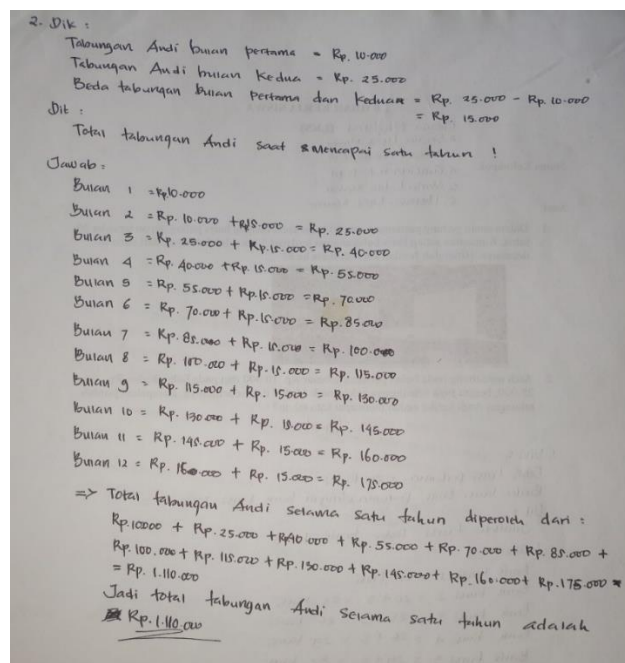 2. Dik :
Tabungan Andi bulan pertama = Rp. 10.000
Tabungan Andi bulan kedua = Rp. 25.000
Beda tabungan bulan pertama dan keduan = Rp. 25.000 - Rp. 10.000
= Rp. 15.000
Dit :
Total tabungan Andi saat mencapai satu tahun !
Jawab :
Bulan 1 = Rp10.000
Bulan 2 = Rp. 10.000 + Rp15.000 = Rp. 25.000
Bulan 3 = Rp. 25.000 + Rp.15.000 = Rp. 40.000
Bulan 4 = Rp. 40.000 + Rp. 15.000 = Rp. 55.000
Bulan 5 = Rp. 55.000 + Rp.15.000 = Rp. 70.000
Bulan 6 = Rp. 70.000 + Rp.15.000 = Rp. 85.000
Bulan 7 = Rp. 85.000 + Rp. 15.000 = Rp. 100.000
Bulan 8 = Rp. 100.000 + Rp. 15.000 = Rp. 115.000
Bulan 9 = Rp. 115.000 + Rp. 15000 = Rp. 130.000
Bulan 10 = Rp. 130.000 + Rp. 15.000 = Rp. 145.000
Bulan 11 = Rp. 145.000 + Rp. 15.000 = Rp. 160.000
Bulan 12 = Rp. 160.000 + Rp. 15.000 = Rp. 175.000
=> Total tabungan Andi selama satu tahun diperoleh dari :
Rp.10000 + Rp. 25.000 + Rp40.000 + Rp. 55.000 + Rp. 70.000 + Rp. 85.000 +
Rp. 100.000 + Rp. 115.000 + Rp. 130.000 + Rp. 145.000 + Rp. 160.000 + Rp. 175.000
= Rp. 1.110.000
Jadi total tabungan Andi selama satu tahun adalah
Rp. 1.110.000